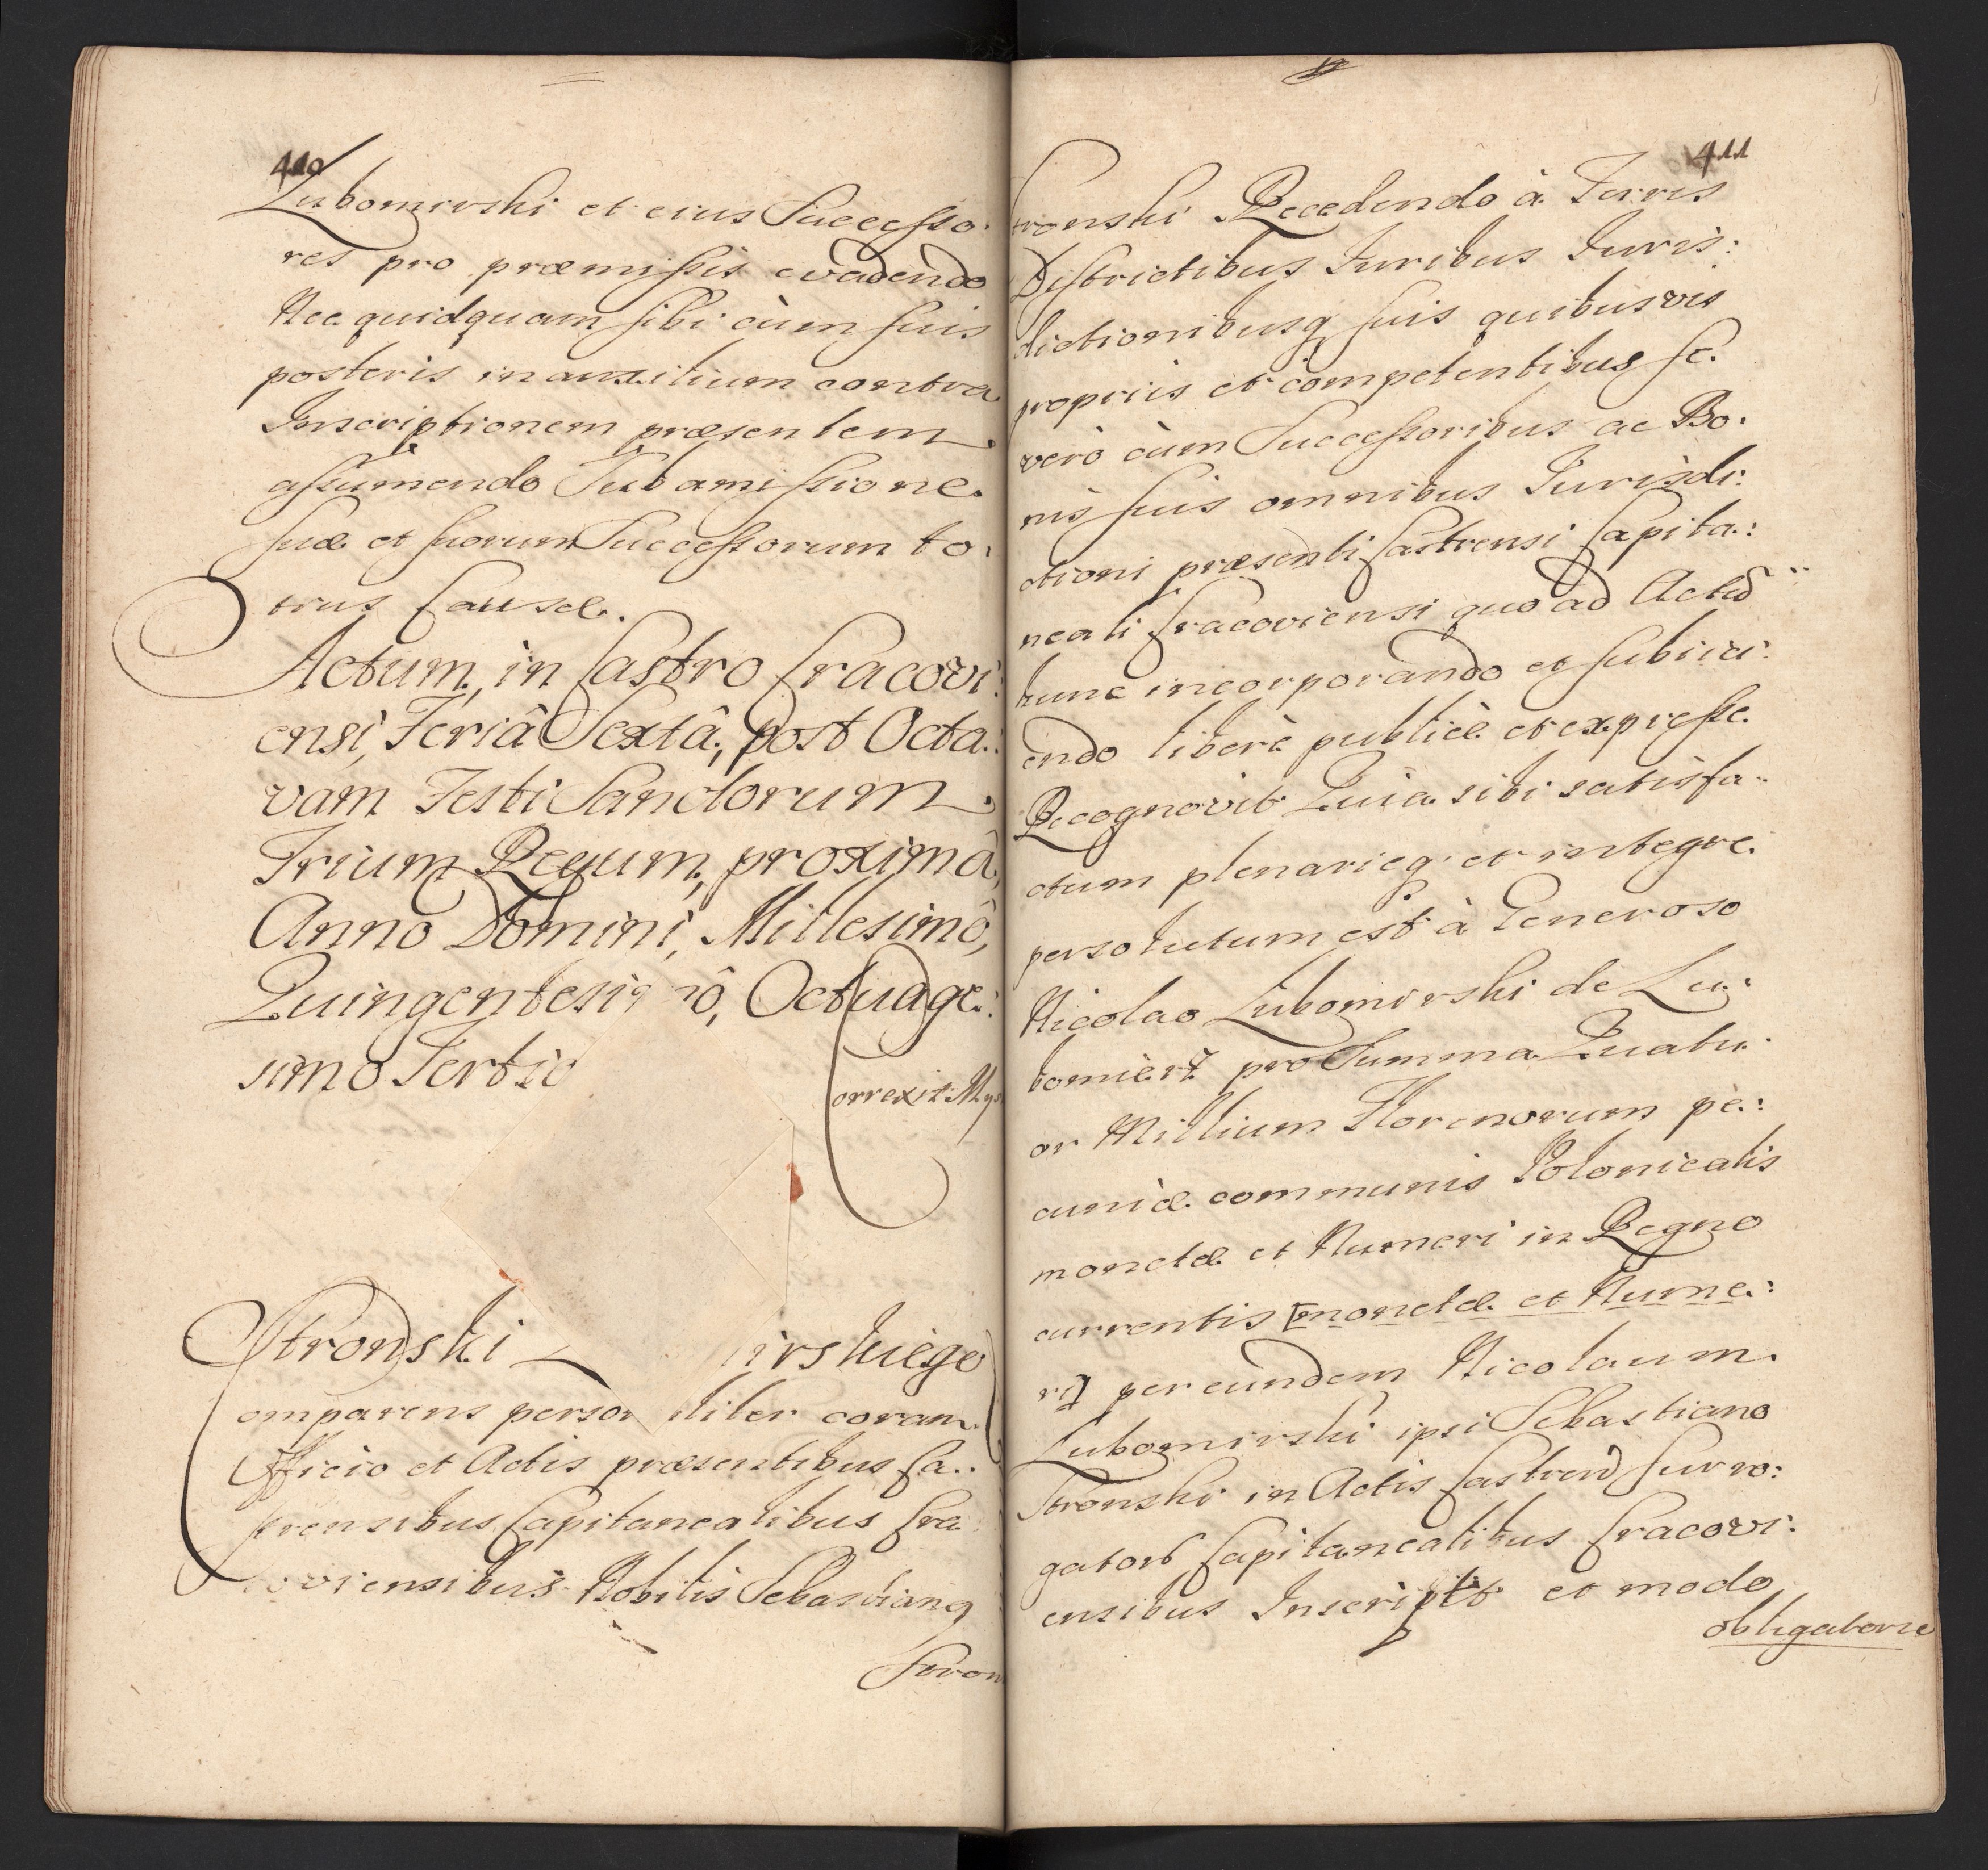 410
Lubomirski et eius Successo:
res pro præmissis evadendo
Nec quidquam sibi cùm suis
posteris in auxilium contra
Inscriptionem præsentem
assumendo Sub amissione
suæ et suorum Successorum to:
tius Causæ.
Actum, in Castro Cracovi:
ensi, Feriâ Sextâ, post Octa:
vam Festi Sanctorum
Trium Regum, proximâ,
Anno Domini, Millesimô,
Quingentesi mô, Octuage:
simo Tertio
Correxit Mys
Stronski L irskiego
Comparens perso liter coram
Officio et Actis præsentibus Ca:
strensibus Capitanealibus Cra
coviensibus Nobilis Sebastianq
Stron
411
tronski Recedendo à Terris
Districtibus Iuribus Iuris:
dictionibusq suis quibusvis
propriis et competentibus se
verò cùm Successoribus ac Bo:
nis suis omnibus Iurisdi:
ctioni præsenti Castrensi Capita:
neali Cracoviensi quo ad Actû
hunc incorporando et subiici:
endo liberè publicè et expresse
Recognovit Quia sibi satisfa:
ctum plenarieq et integre
persolutum est à Generoso
Nicolao Lubomirski de Lu:
bomierz pro Summa Quatu:
or Millium Florenorum pe:
cuniæ communis Polonicalis
monetæ et Numeri in Regno
currentis [monetæ et Nume:
ri] per eundem Nicolaum
Lubomirski ipsi Sebastiano
Stronski in Actis Castren Surro:
gatorb Capitanealibus Cracovi:
ensibus Inscriptt et modo
obligatorie